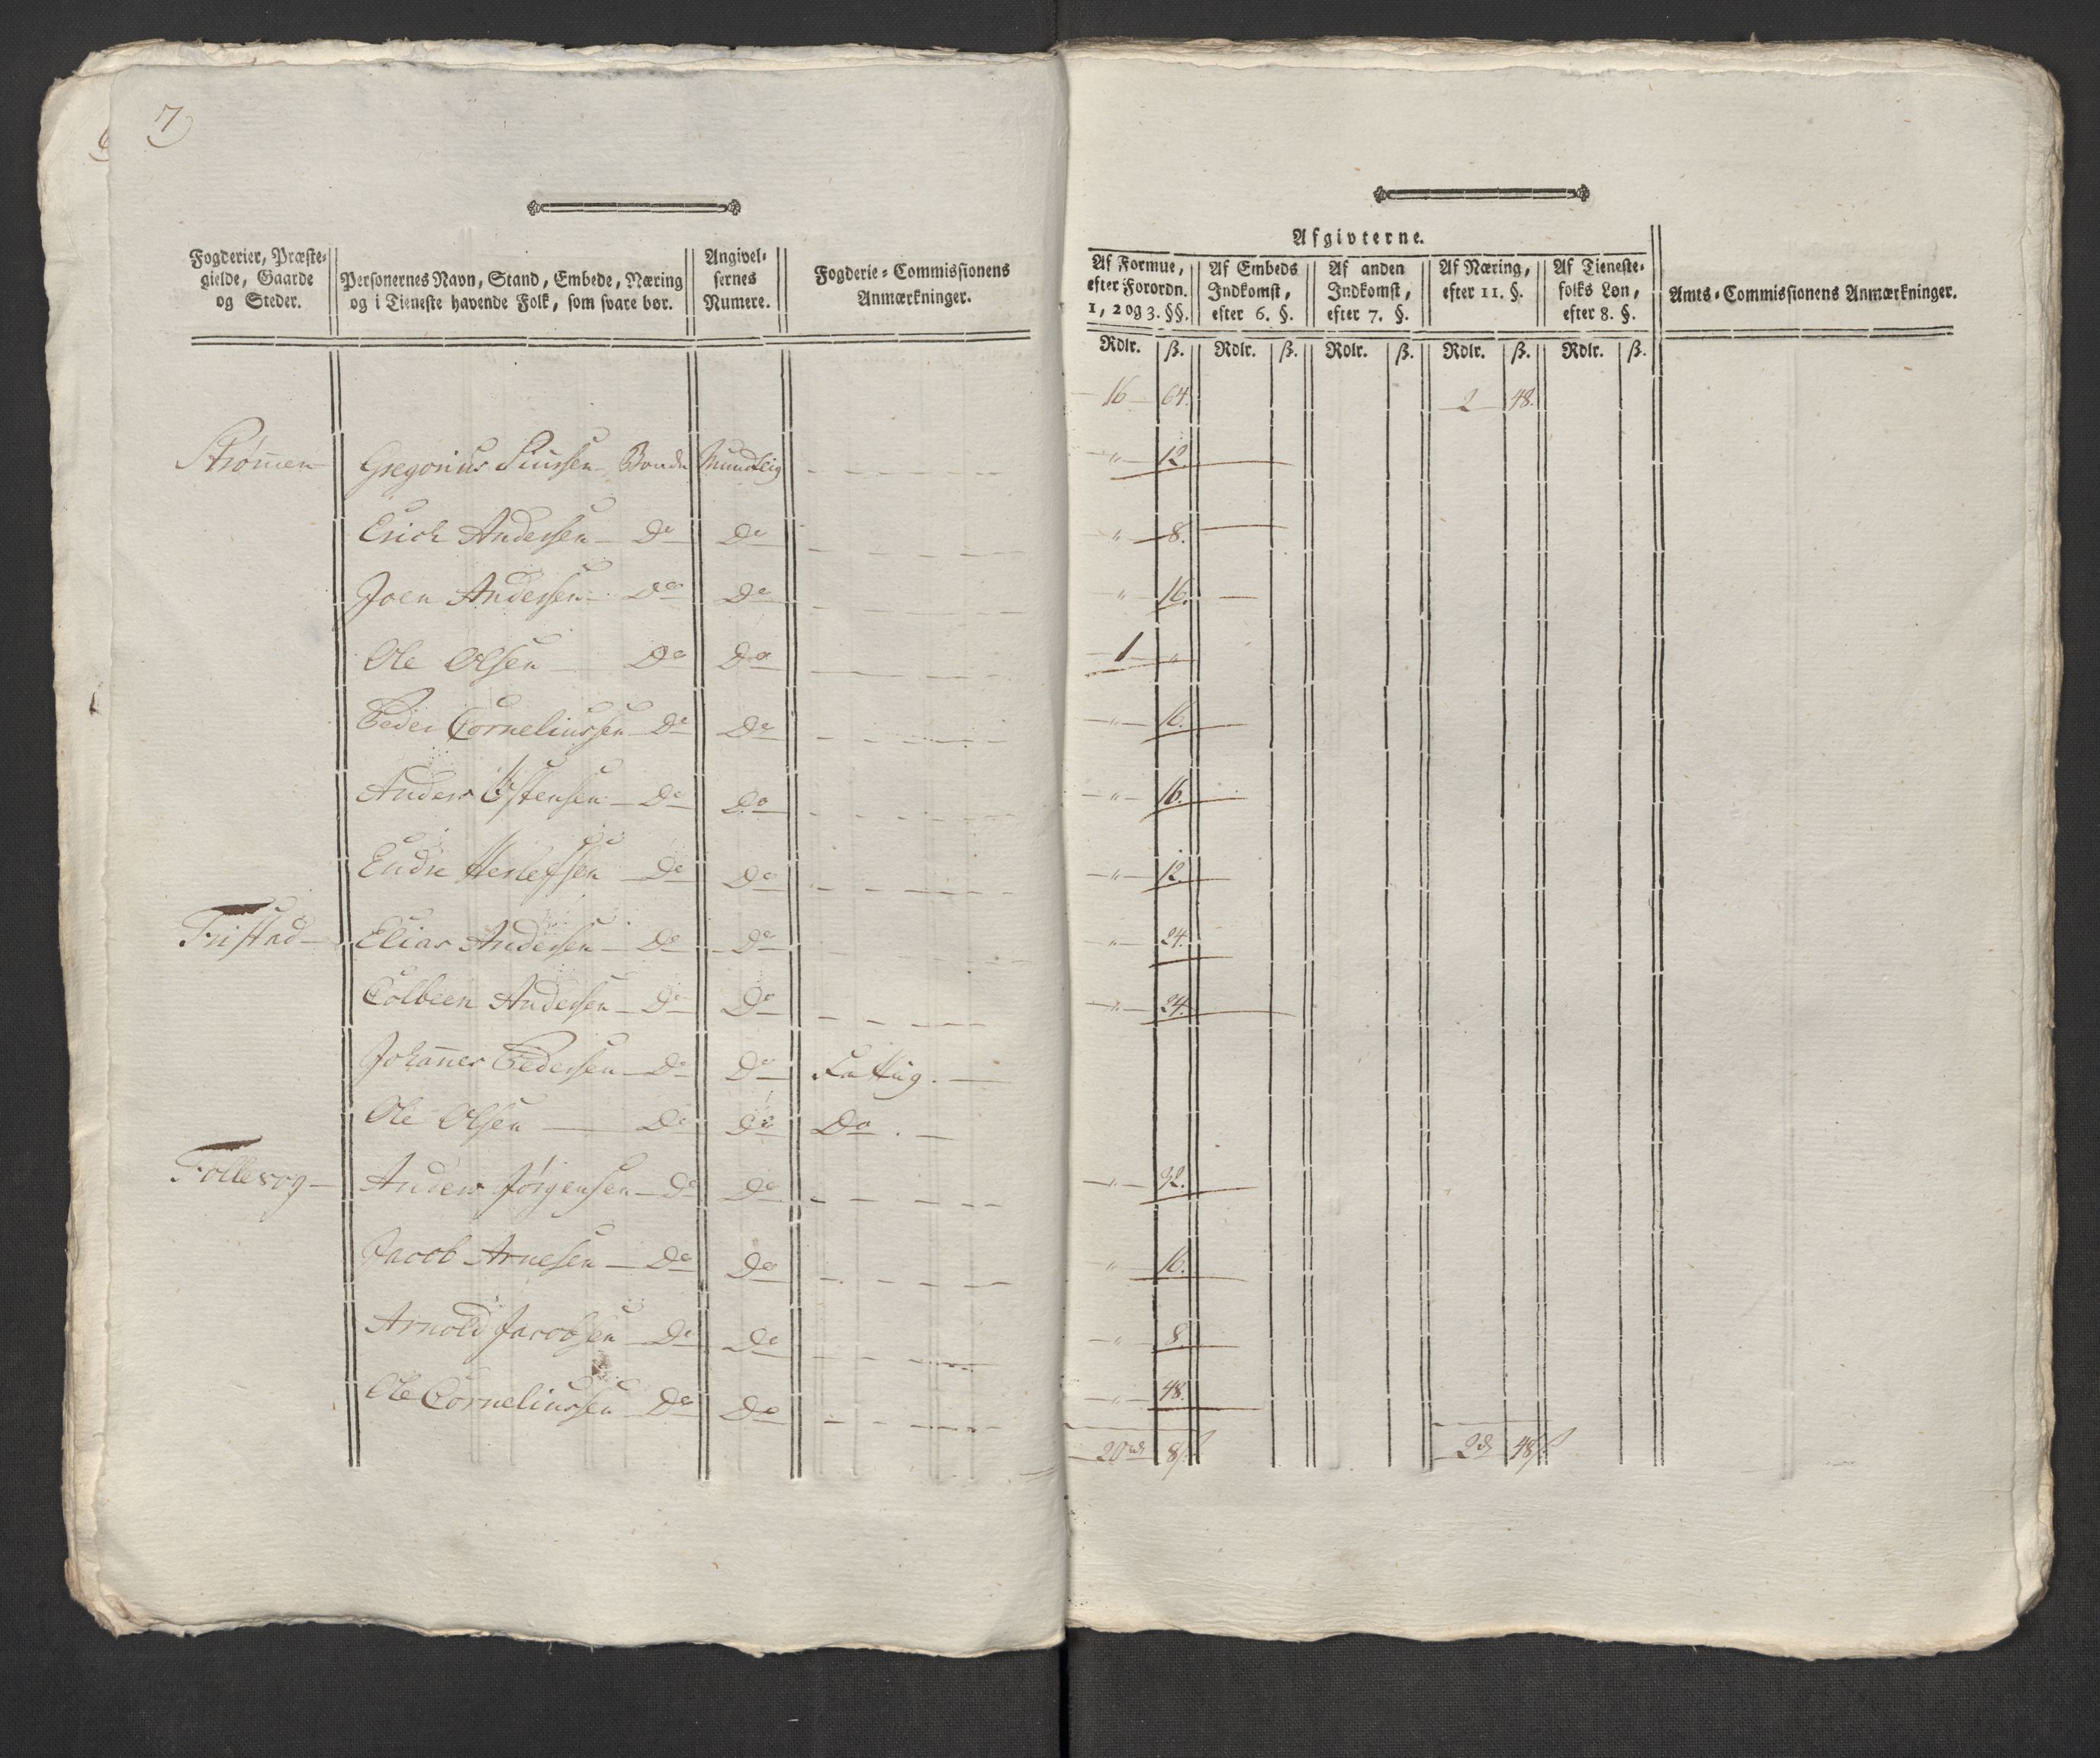 7
Fogderier, Præste-
gielde, Gaarde
og Steder.
Personernes Navn, Stand, Embede, Næring
og i Tieneste havende Folk, som svare bør.
Angivel-
sernes
Numere.
Fogderie-Commissionens
Anmærkninger.
Afgivterne.
Af Formue,
efter Forordn.
1, 2 og 3. §§.
Af Embeds
Indkomst,
efter 6. §.
Af anden
Indkomst,
efter 7. §.
Af Næring,
efter 11. §.
Af Tieneste-
folks Løn,
efter 8. §.
Amts-Commissionens Anmærkninger.
Rdlr. ß. Rdlr. ß. Rdlr. ß. Rdlr. ß. Rdlr. ß.
16 64. 2 48.
Strømen Gregorius Bonde Mundtlig " 12.
Erich Andersen Do Do " 8.
Joen Andersen Do Do " 16.
Ole Olsen Do Do 1 "
Peder Corneliussen Do Do " 16.
Anders Østensen Do Do " 16.
Endre Herlefsen Do Do " 12.
Fristad Elias Andersen Do Do " 24.
Colbeen Andersen Do Do " 24.
Johanes Pedersen Do Do Fattig.
Ole Olsen Do Do Do.
Follevog Anders Jörgensen Do Do " 32.
Jacob Arnesen Do Do " 16.
Arnold Jacobsen Do Do " 8.
Ole Corneliussen Do Do " 48.
20 rd 8 ß 2 d 48 ß